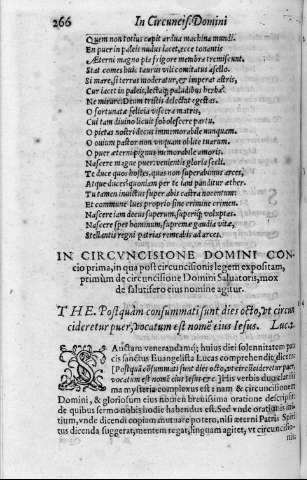 266 In Circuncis. Domini
Quem non totius capit ardua machina mundi.
En puer in paleis nudus iacet, ecce tonantis
Æterni magno præ frigore membra tremiscunt.
Stat comes huic taurus vili comitatus asello.
Si mare, si terras moderatur, & imperat astris,
Cur iacet in paleis, lectusq; paludibus herba?
Ne mirare: Deum tristis delectat egestas.
O fortunatæ felicia viscera matris,
Cui tam diuino licuit sobolescere partu,
O pietas nostri decus immemorabile nunquam.
O ouium pastor non vnquam oblite tuarum.
O puer æterni pignus memorabile amoris.
Nascere magne puer: venientis gloria secli.
Te duce quos hostes, quius non superabimus arces,
Atque duces? quoniam per te iam panditur æther.
Tu tamen inuictus super abis castra noentum:
Et commune lues proprio sine crimine crimen.
Nascere iam decus superum, superiq; voluptas.
Nascere spes hominum, supremæ gaudia vitæ,
Stellantis regni patrias remeabis ad arces.
IN CIRCVNCISIONE DOMINI CON
cio prima, in qua post circuncisionis legem expositam,
primùm de circuncisione Domini Saluatoris, mox
de salutifero eius nomine agitur.
THE. Postquàm consummati sunt dies octo, vt circum
cideretur puer, vocatum est nomē eius Iesus. Lucæ
SAncta veneranda huius diei solennitatem pau
cis sanctus Euangelista Lucas comprehendit, dicēs:
[Postquā cōsummati sunt dies octo, vt circūcideretur puer,
vocatum est nomē eius Iesus &c.] His verbis duo clarissi
ma mysteria complexus est: nam & circuncisionem
Domini, & gloriosum eius nomen breuissima oratione descripsit
de quibus sermo nobis hodie habendus est. Sed vnde orationis ini
tium, vnde dicendi copiam mutuare potero, nisi æterni Patris Spiri
tus dicenda suggerat, mentem regat, linguam agitet, vt circuncisio-
nis